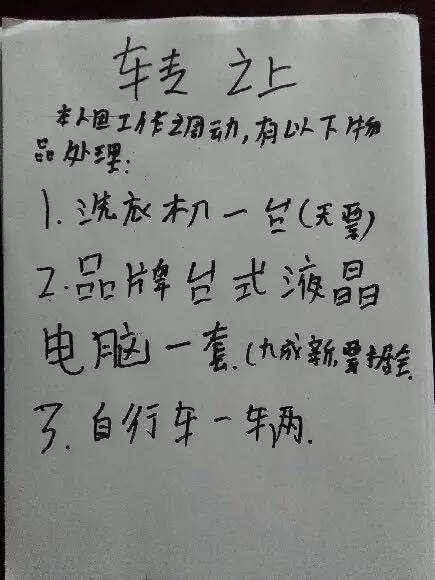 转让
本人因工作调动,有以下物
品处理:
1.洗衣机一台(无票)
2.品牌台式液晶
电脑一套.(九成新,票据全
3.自行车一辆.